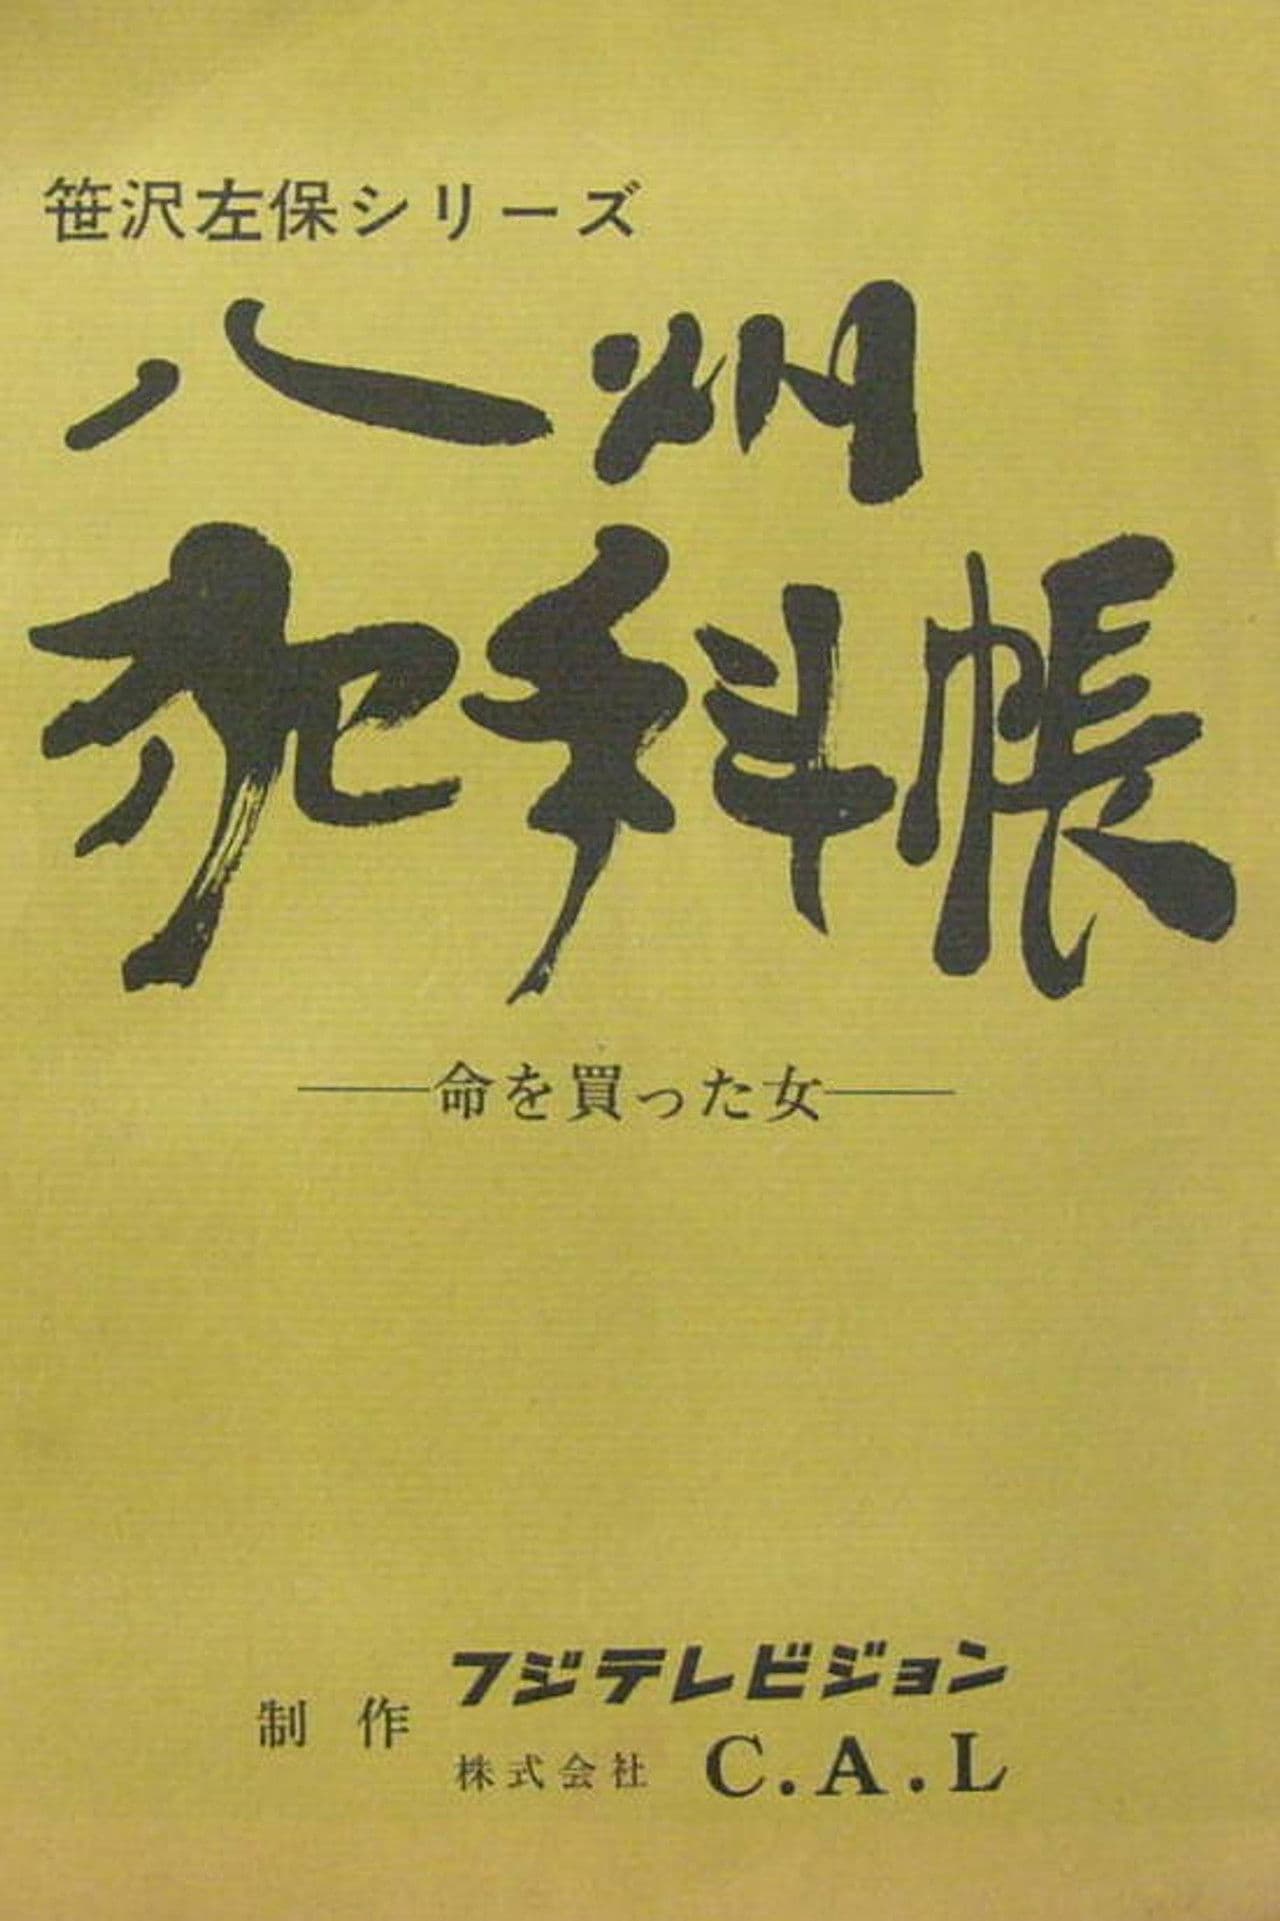 笹沢左保シリーズ
八州
犯科帳
――命を買った女――
制作 フジテレビジョン
株式会社 C.A.L